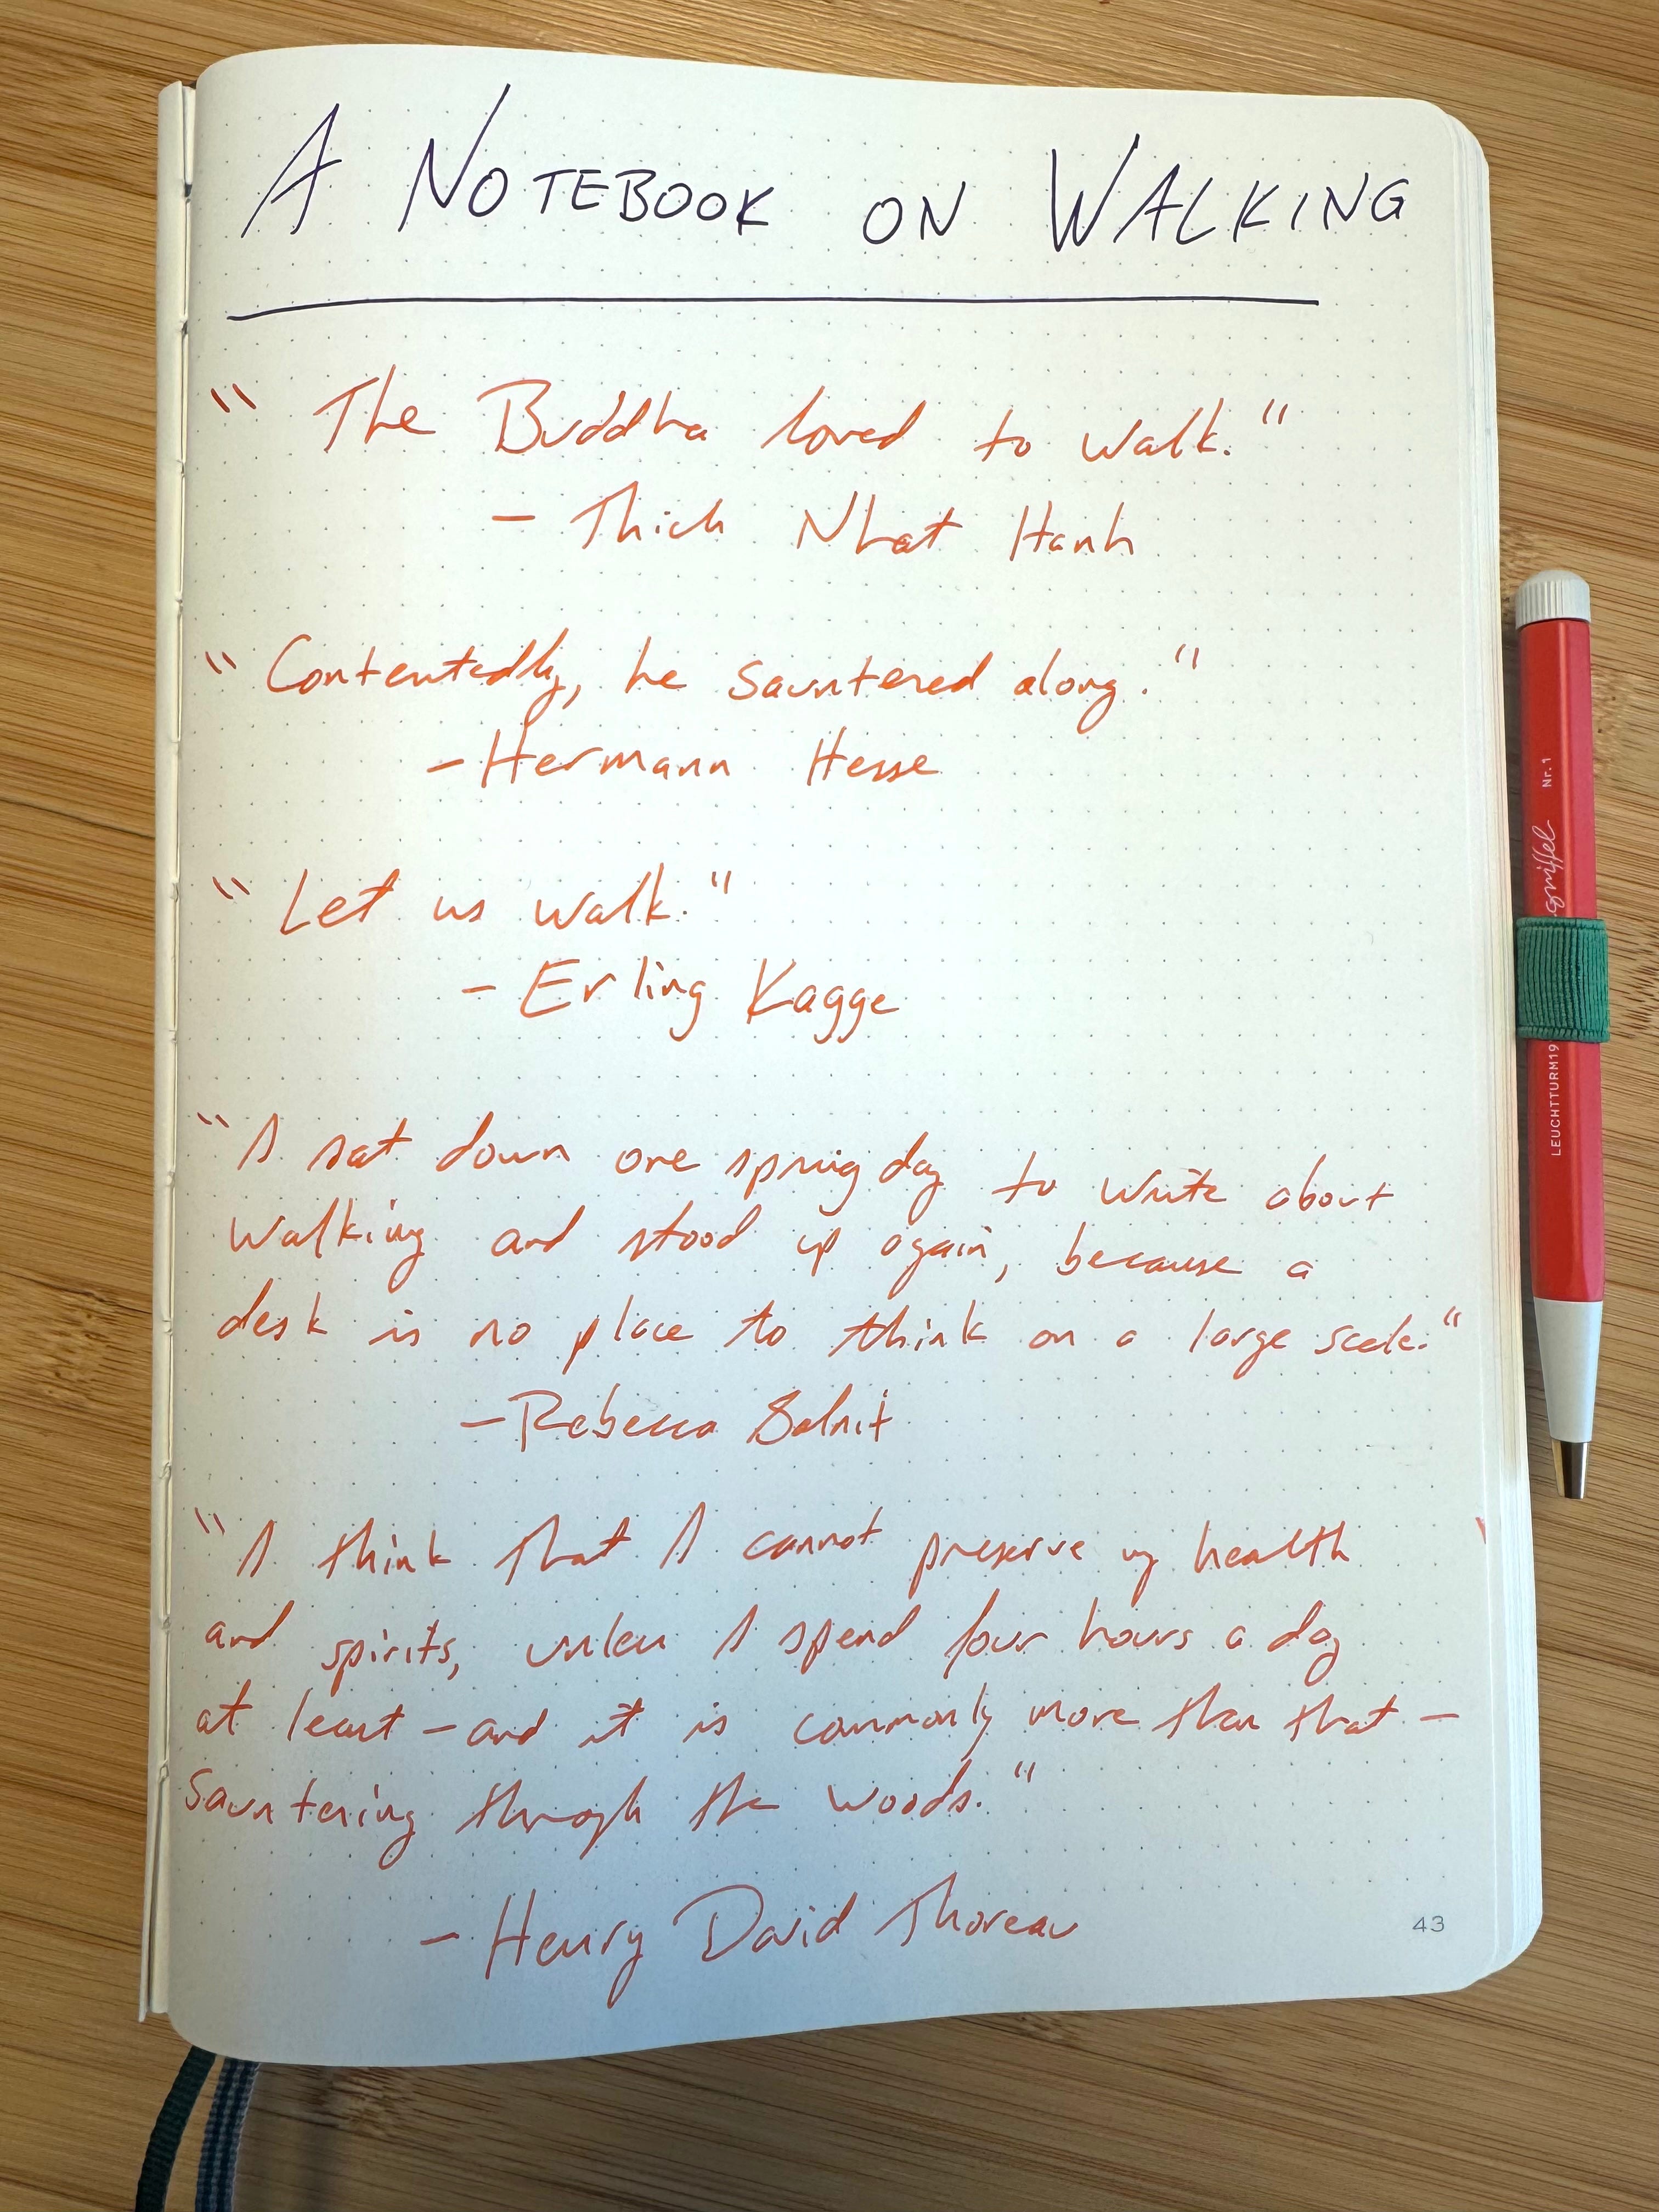 A NOTEBOOK ON WALKING
"The Buddha loved to walk."
- Thich Nhat Hanh
"Contentedly, he sauntered along."
- Hermann Hesse
"Let us walk."
- Erling Kagge
"I sat down one spring day to write about
walking and stood up again, because a
desk is no place to think on a large scale."
- Rebecca Solnit
"I think that I cannot preserve my health
and spirits, unless I spend four hours a day
at least - and it is commonly more than that -
sauntering through the woods."
- Henry David Thoreau
43
Nr. 1
LEUCHTTURM19